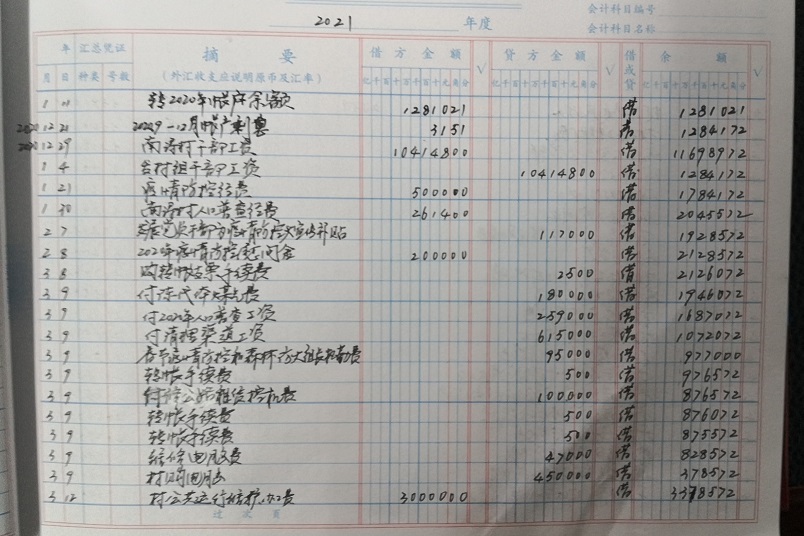 会计科目编号
2021 年度 会计科目名称
年 汇总凭证 摘要 借方金额 √ 贷方金额 √ 借或贷 余额 √
月 日 种类 号数 (外汇收支应说明原币及汇率) 亿千百十万千百十元角分 亿千百十万千百十元角分 亿千百十万千百十元角分
1 转2020年 余额 1281021 借 1281021
2020 12 21 利息 3151 借 1284172
2020 12 29 南 村干部工资 10414800 借 11698972
1 4 村组干部工资 10414800 借 1284172
1 21 疫情防控经费 500000 借 1784172
1 30 南 村人口普查经费 261400 借 2045572
2 7 117000 借 1928572
2 8 疫情防控慰问金 200000 借 2128572
3 8 购转帐支票手续费 2500 借 2126072
3 9 付 费 180000 借 1946072
3 9 付2020年人口普查工资 259000 借 1687072
3 9 付清理渠道工资 615000 借 1072072
3 9 春节疫情防控和森林防火 费 95000 借 977000
3 9 转帐手续费 500 借 976572
3 9 付 公路租赁挖机费 100000 借 876572
3 9 转帐手续费 500 借 876072
3 9 转帐手续费 500 借 875572
3 9 维修电脑费 47000 借 828572
3 9 村购电脑 450000 借 378572
3 12 村公共运行维护 费 3000000 借 3378572
过次页